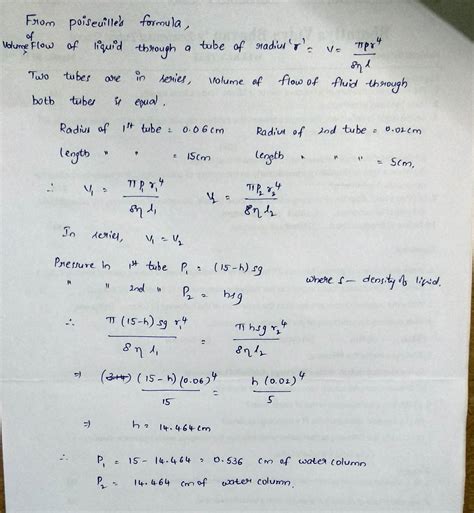 From poiseuille's formula,
Volume of flow of liquid through a tube of radius 'r' = V = πpr⁴ / 8ηl
Two tubes are in series, volume of flow of fluid through
both tubes is equal.
Radius of 1st tube = 0.06cm Radius of 2nd tube = 0.02cm
length " " = 15cm length " " = 5cm.
∴ V₁ = πP₁r₁⁴ / 8ηl₁ V₂ = πP₂r₂⁴ / 8ηl₂
In series, V₁ = V₂
Pressure in 1st tube P₁ = (15-h)sg where s - density of liquid.
" " 2nd " P₂ = hsg
∴ π(15-h)sg r₁⁴ / 8ηl₁ = πhsg r₂⁴ / 8ηl₂
⇒ (15-h)(0.06)⁴ / 15 = h(0.02)⁴ / 5
⇒ h = 14.464cm
∴ P₁ = 15 - 14.464 = 0.536 cm of water column
P₂ = 14.464 cm of water column.